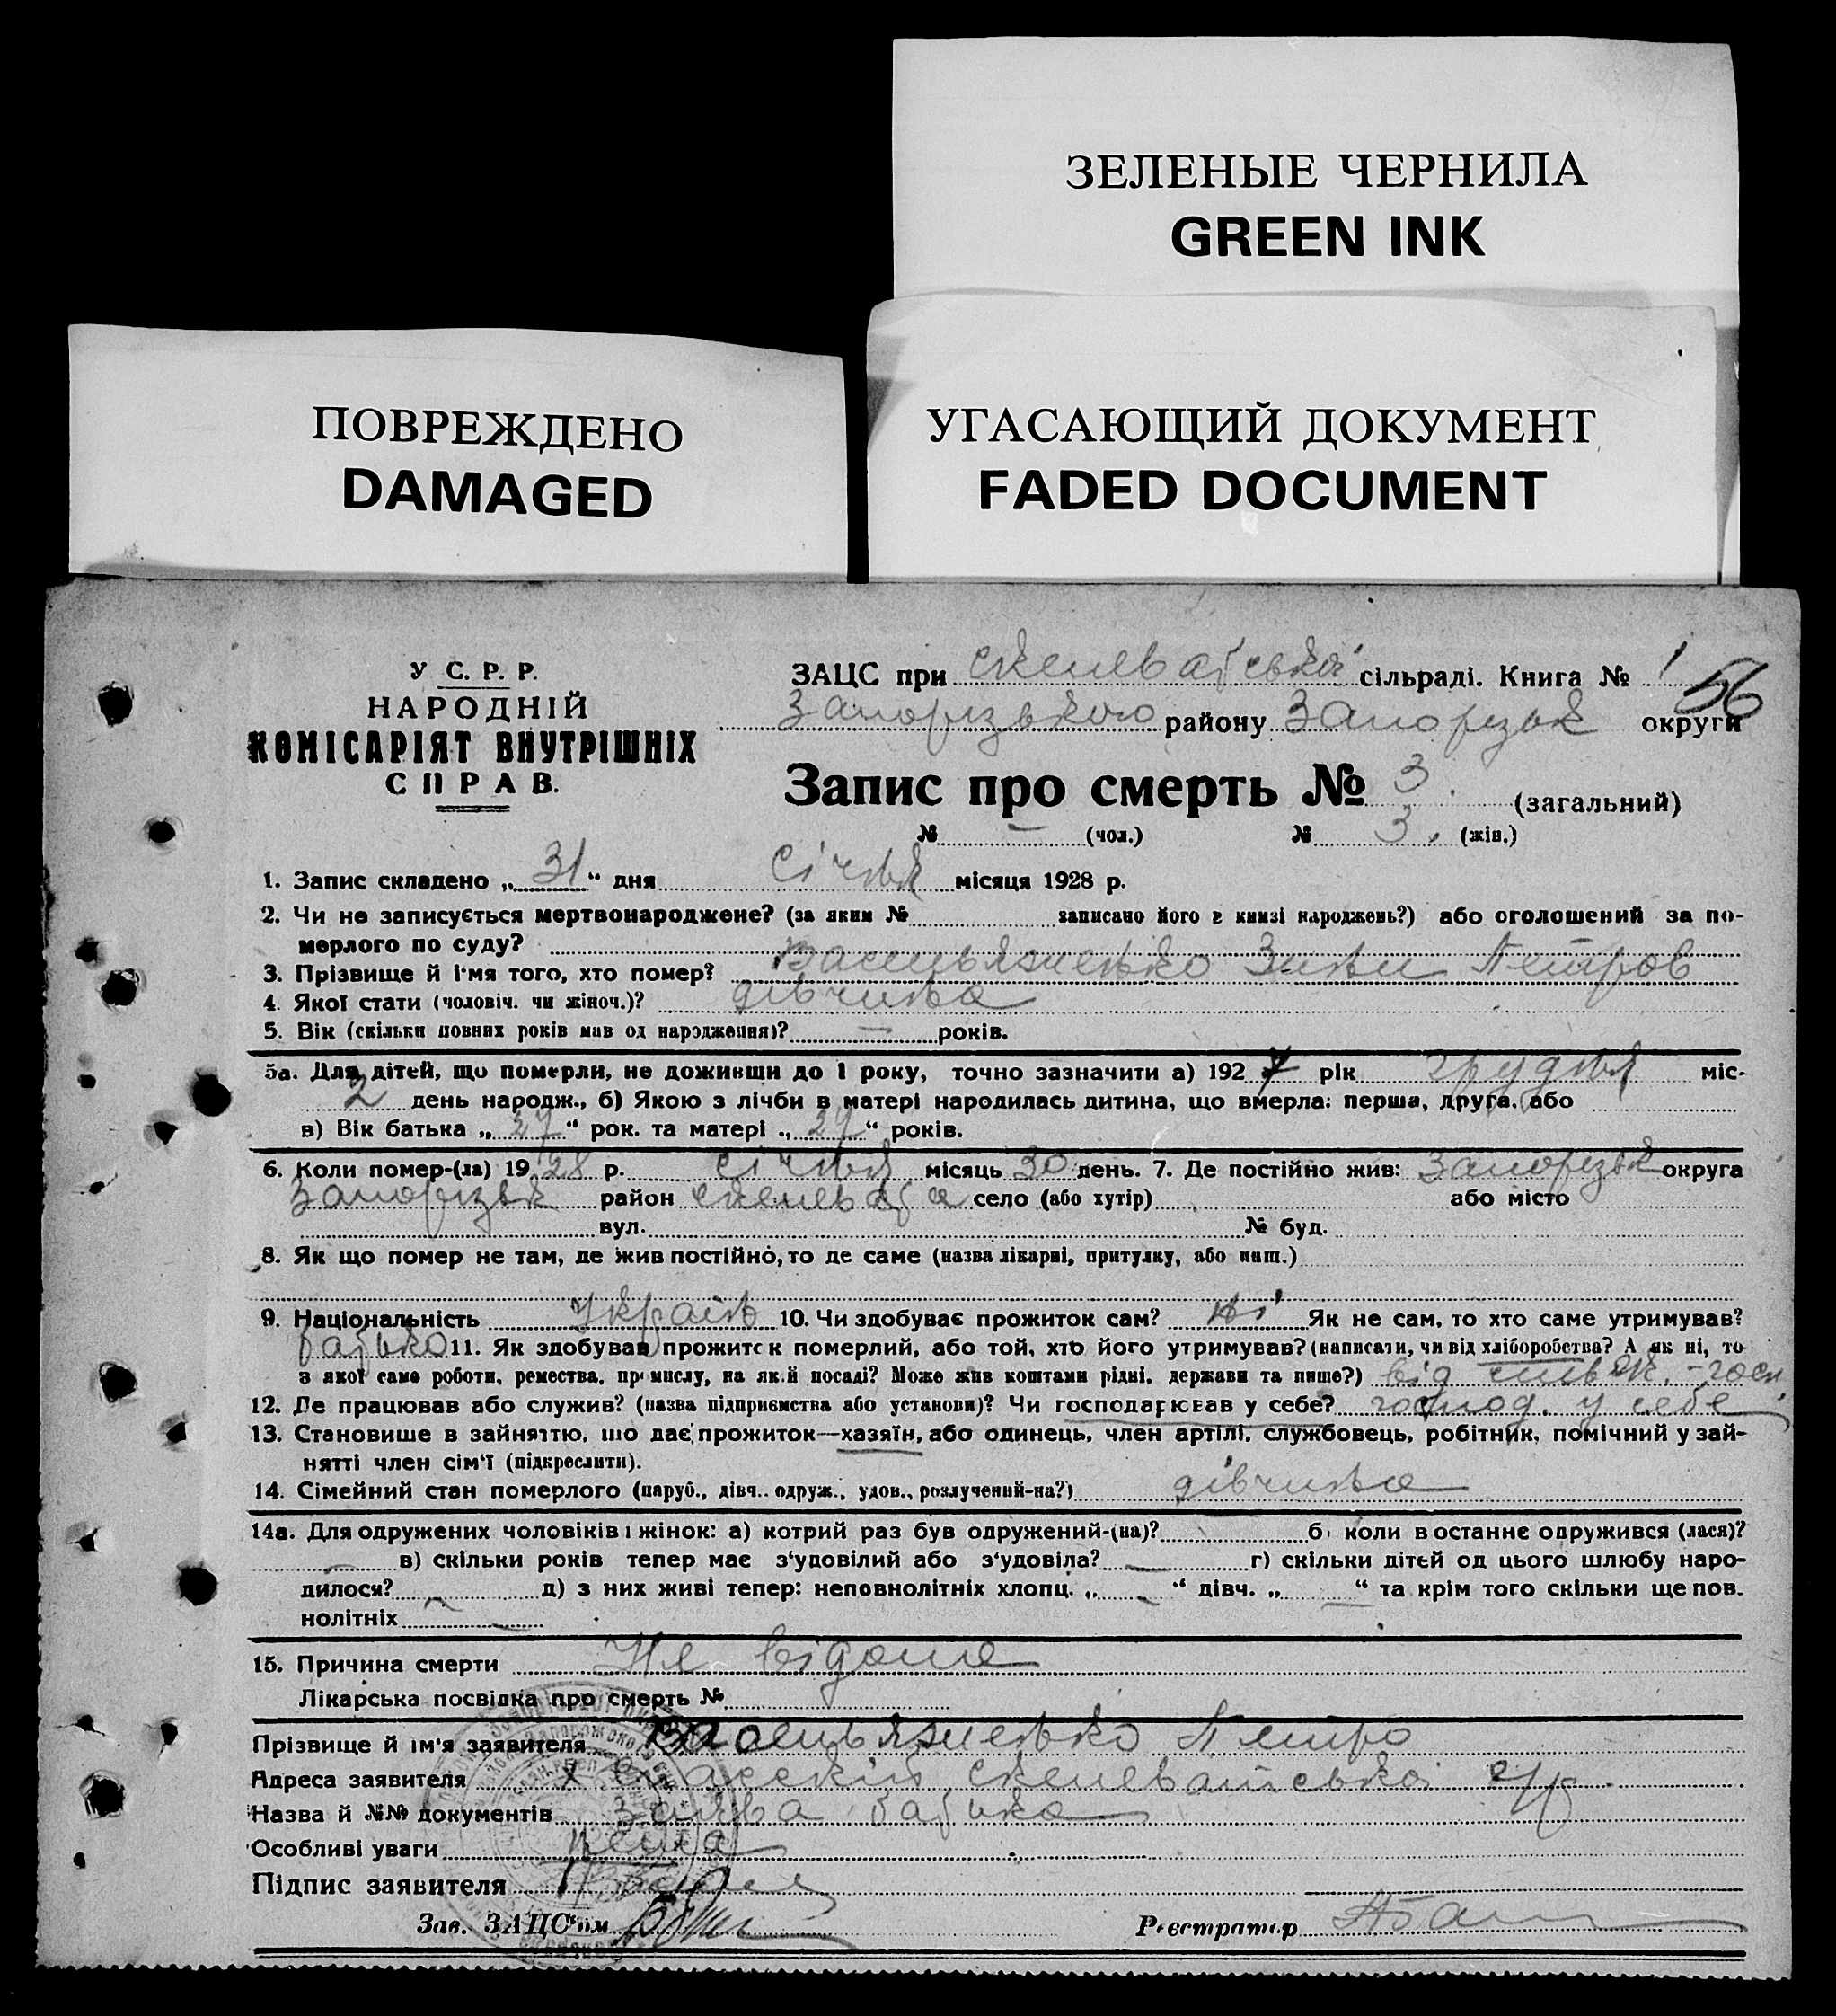 ЗЕЛЕНЫЕ ЧЕРНИЛА
GREEN INK
ПОВРЕЖДЕНО
DAMAGED
УГАСАЮЩИЙ ДОКУМЕНТ
FADED DOCUMENT
У С. Р. Р.
НАРОДНІЙ
КОМІСАРІЯТ ВНУТРІШНІХ
СПРАВ.
ЗАЦС при сільраді. Книга № 1
56
Запорізького району Запорізьк округи
Запис про смерть № 3. (загальний)
№ — (чол.) № 3. (жін.)
1. Запис складено „31“ дня Січня місяця 1928 р.
2. Чи не записується мертвонароджене? (за яким № записано його в книзі народжень?) або оголошений за по-
мерлого по суду?
3. Прізвище й ім'я того, хто помер? Петров
4. Якої стати (чоловіч. чи жіноч.)? дівчина
5. Вік (скільки повних років мав од народження)? — років.
5а. Для дітей, що померли, не доживши до 1 року, точно зазначити а) 1927 рік грудня міс-
2 день народж., б) Якою з лічби в матері народилась дитина, що вмерла: перша, друга, або
в) Вік батька „27“ рок. та матері „27“ років.
6. Коли помер-(ла) 1928 р. січня місяць 30 день. 7. Де постійно жив: Запорізьк округа
Запорізьк район село (або хутір) або місто
вул. № буд.
8. Як що помер не там, де жив постійно, то де саме (назва лікарні, притулку, або инш.)
9. Національність Україн 10. Чи здобуває прожиток сам? ні Як не сам, то хто саме утримував?
батько 11. Як здобував прожиток померлий, або той, хто його утримував? (написати, чи від хліборобства? А як ні, то
з якої саме роботи, ремества, промислу, на якій посаді? Може жив коштами рідні, держави та инше?) від сільськ.-госп.
12. Де працював або служив? (назва підприємства або установи)? Чи господарював у себе? господ. у себе
13. Становище в зайняттю, що дає прожиток—хазяїн, або одинець, член артілі, службовець, робітник, помічний у зай-
нятті член сім'ї (підкреслити).
14. Сімейний стан померлого (паруб., дівч.. одруж., удов., розлучений-на?) дівчина
14а. Для одружених чоловіків і жінок: а) котрий раз був одружений-(на)? б) коли востаннє одружився (лася)?
в) скільки років тепер має з'удовілий або з'удовіла? г) скільки дітей од цього шлюбу наро-
дилося? д) з них живі тепер: неповнолітніх хлопц. „ — “ дівч. „ — “ та крім того скільки ще пов.
нолітніх —
15. Причина смерти Не відома
Лікарська посвідка про смерть №
Прізвище й ім'я заявителя Петро
Адреса заявителя
Назва й №№ документів Заява батька
Особливі уваги нема
Підпис заявителя
Зав. ЗАЦС'ом Реєстратор